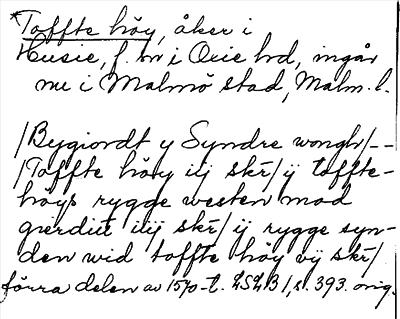 *Toffte höy, åker i
Husie, f. sn i Oxie hrd, ingår
nu i Malmö stad, Malm. l.
/Bygiordt y Syndre wongh/--
/Toffte höy iij skr/ ij toffte-
höys rygge westen mod
gierdit iiij skr/ ij rygge syn-
den wid toffte höy vij skr/
förra delen av 1570-t. LSLB 1, s. 393. orig.